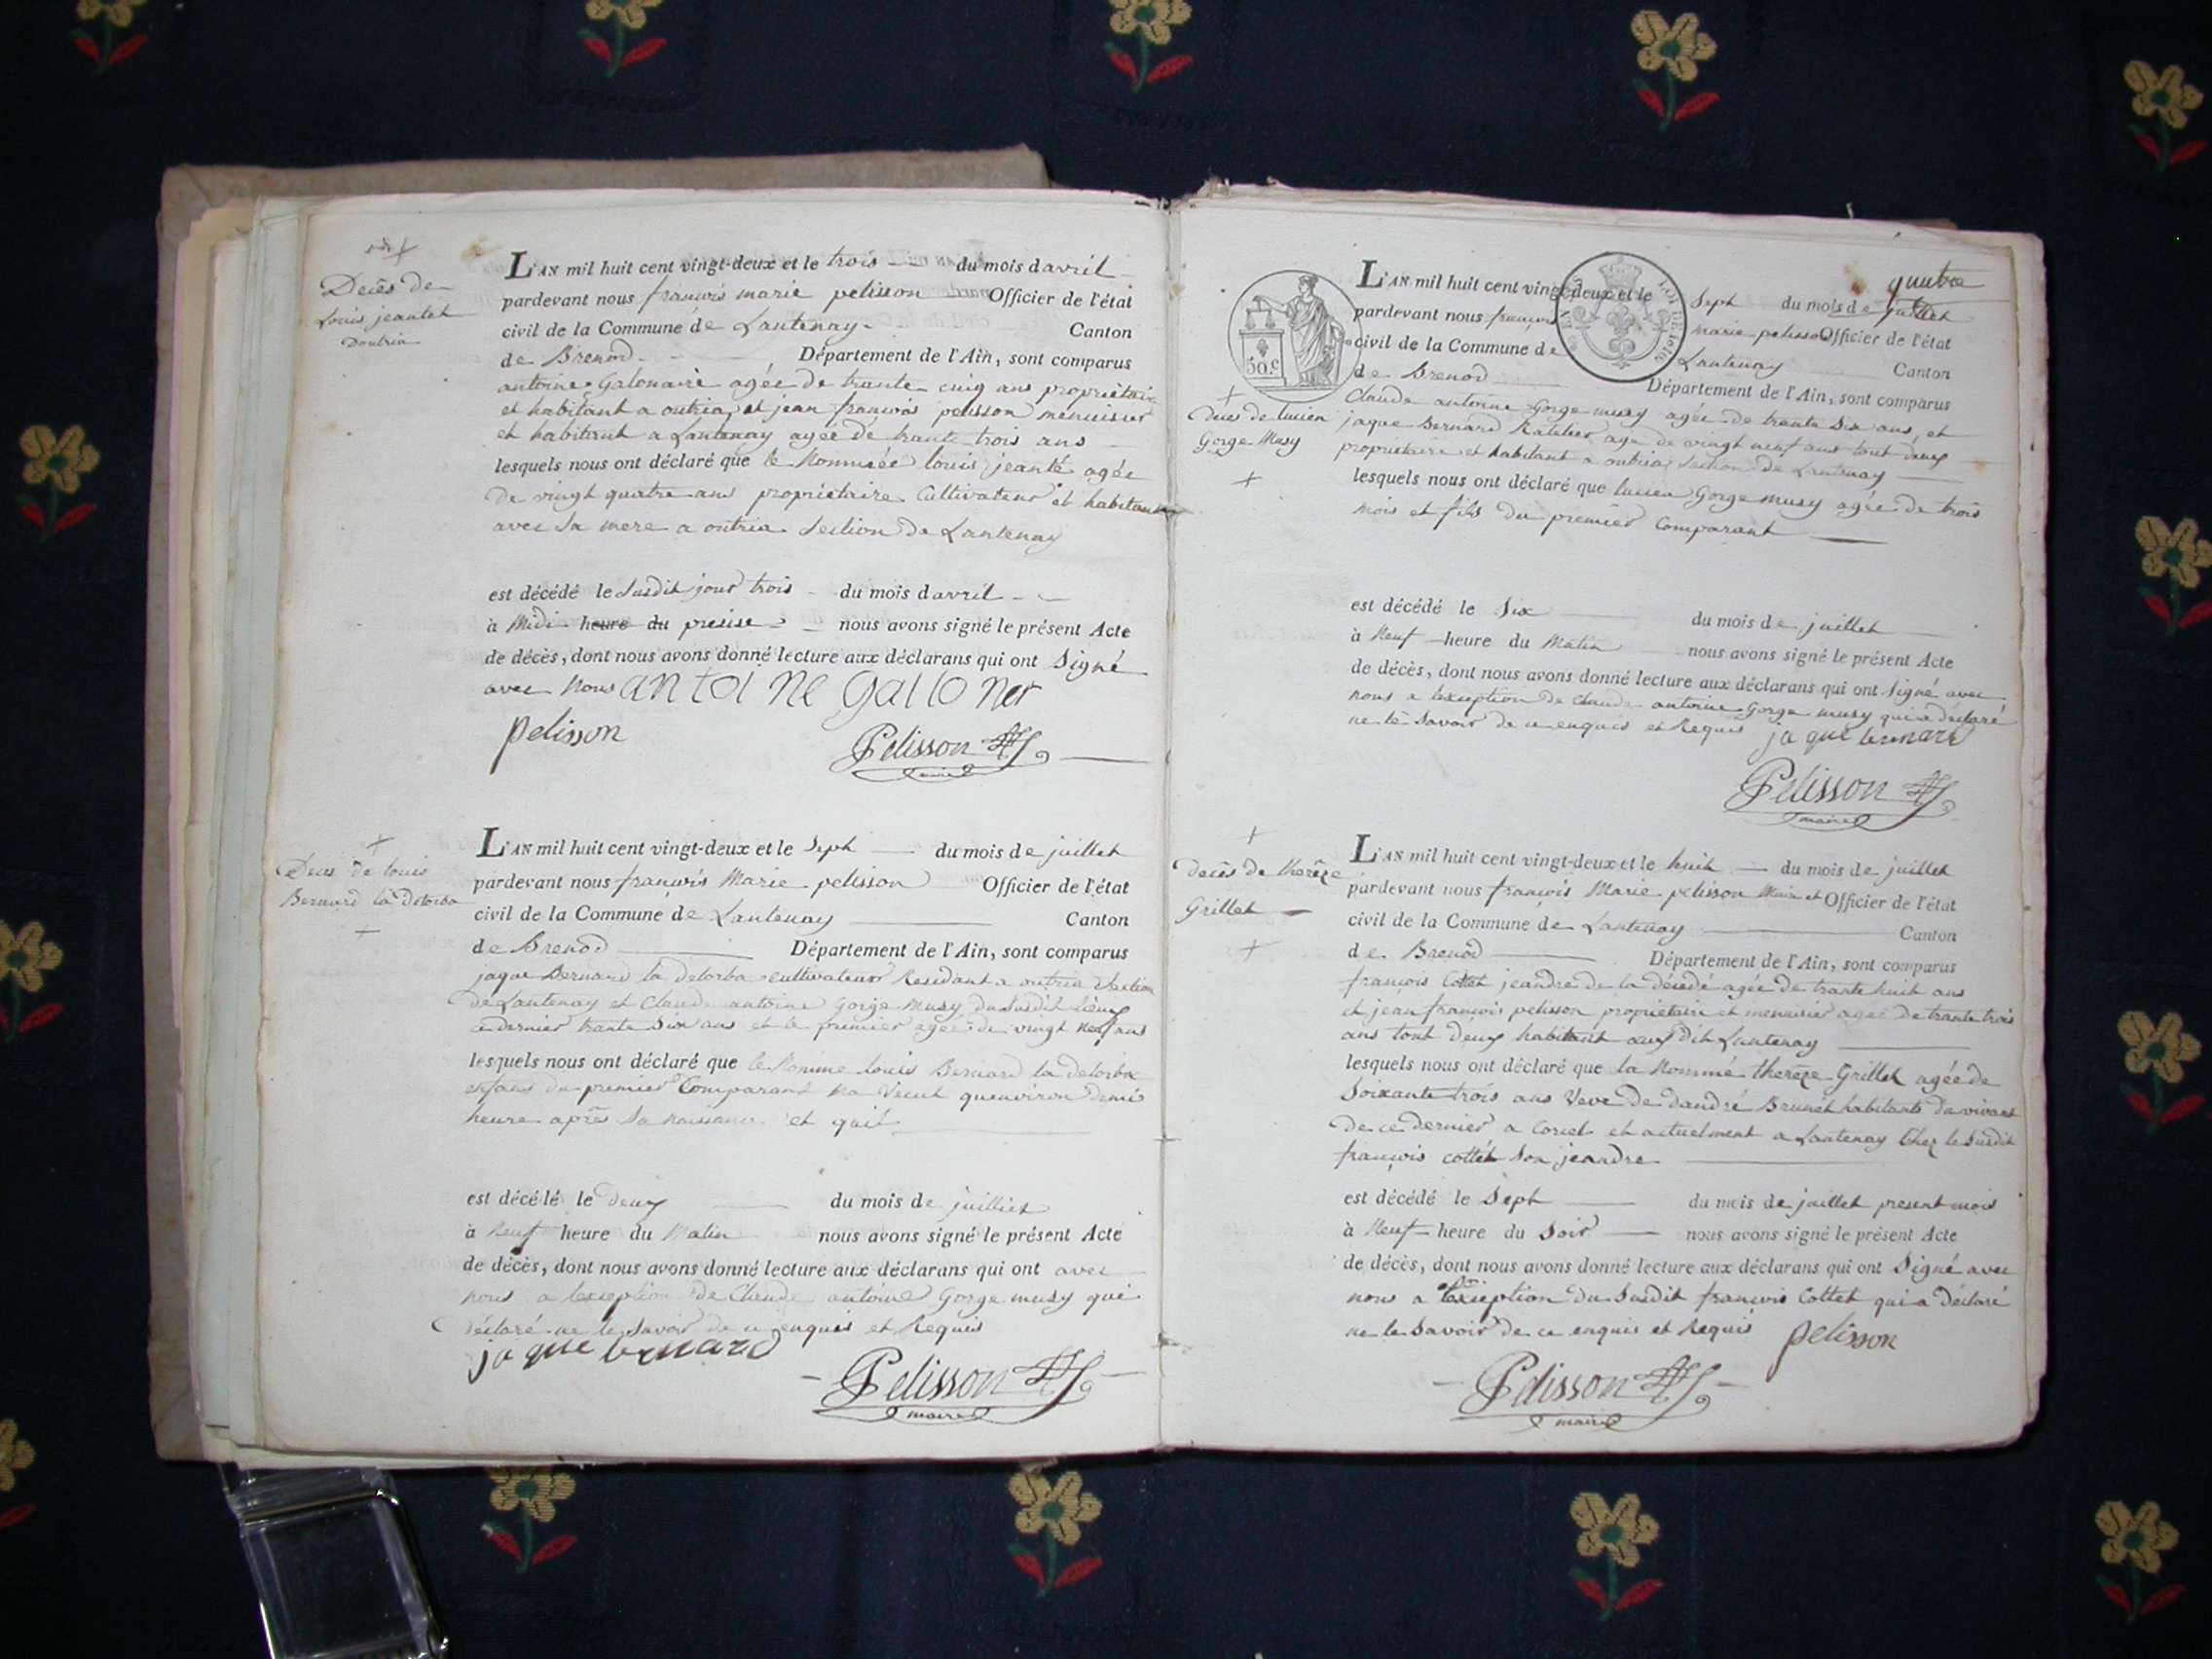 Decès de
Louis jeantet
Doutria
L'AN mil huit cent vingt-deux et le trois du mois d avril
pardevant nous francois marie pelisson Officier de l'état
civil de la Commune de Lantenay Canton
de Brenod Département de l'Ain, sont comparus
antoine Galonaire agée de trante cinq ans propriétaire
et habitant a outria et jean francois pelisson menuisier
et habitant a Lantenay agée de trante trois ans
lesquels nous ont déclaré que le Nommée louis jeanté agée
de vingt quatre ans propriétaire Cultivateur et habitant
avec sa mere a outria Section de Lantenay
est décédé le Susdit jour trois du mois d avril
à Midi heure du presise nous avons signé le présent Acte
de décès, dont nous avons donné lecture aux déclarans qui ont Signé
avec Nous antoine gallo ner
pelisson
Pelisson
maire
Deces de louis
Bernard la Delorba
L'AN mil huit cent vingt-deux et le Sept du mois de juillet
pardevant nous francois Marie pelisson Officier de l'état
civil de la Commune de Lantenay Canton
de Brenod Département de l'Ain, sont comparus
jaque Bernard la Delorba cultivateur Residant a outria Section
de Lantenay et Claude antoine Gorge Musy du Susdit lieux
ce dernier trante Six ans et le premier agée de vingt Neuf ans
lesquels nous ont déclaré que le Nomme louis Bernard la delorba
enfans du premier Comparant na Vecut quenviron demis
heure après Sa naissance et quil
est décélé le deux du mois de juilliet
à Neuf heure du Matin nous avons signé le présent Acte
de décès, dont nous avons donné lecture aux déclarans qui ont avec
nous a lexception de Claude antoine Gorge musy qui
déclaré ne le Savoir de ce enquis et Requis
jaque bernard
Pelisson
maire
quatre
50.c
LOI DE 1816
L'AN mil huit cent vingt-deux et le Sept du mois de juillet
pardevant nous françois marie pelisson Officier de l'état
civil de la Commune de Lantenay Canton
de Brenod Département de l'Ain, sont comparus
Deces de lucien
Gorge Musy
Claude antoine Gorge musy agée de trante Six ans, et
jaque Bernard age de vingt neuf ans tout deux
propriétaire et habitant a outria Section de Lantenay
lesquels nous ont déclaré que lucien Gorge musy agée de trois
mois et fils du premier Comparant
est décédé le Six du mois de juillet
à Neuf heure du Matin nous avons signé le présent Acte
de décès, dont nous avons donné lecture aux déclarans qui ont Signé avec
nous a lexception de Claude antoine Gorge musy qui a déclaré
ne le Savoir de ce enquis et Requis jaque bernard
Pelisson
maire
Decès de therèze
Grillet
L'AN mil huit cent vingt-deux et le huit du mois de juillet
pardevant nous françois Marie pelisson Maire et Officier de l'état
civil de la Commune de Lantenay Canton
de Brenod Département de l'Ain, sont comparus
françois Cottet jeandre de la décedé agée de trante huit ans
et jean françois pelisson propriétaire et menuisier agée de trante trois
ans tout deux habitant aux dit Lantenay
lesquels nous ont déclaré que la Nommé therèze Grillet agée de
Soixante trois ans Veve de dandré Brunet habitants du vivant
de ce dernier a Corcel et actuelment a Lantenay Chez le Susdit
françois cottet Son jeandre
est décédé le Sept du mois de juillet present mois
à Neuf heure du Soir nous avons signé le présent Acte
de décès, dont nous avons donné lecture aux déclarans qui ont Signé avec
nous a lexception du Susdit françois Cottet qui a déclaré
ne le Savoir de ce enquis et Requis pelisson
Pelisson
maire